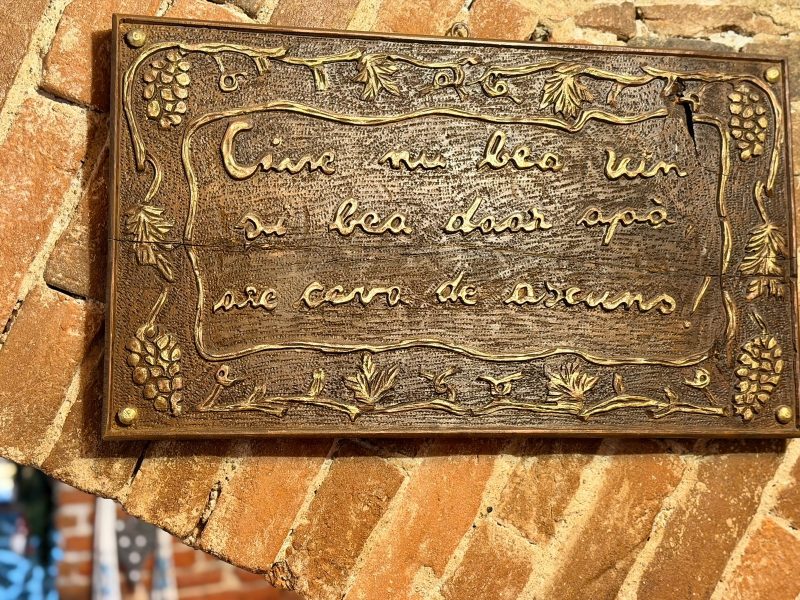 Cine nu bea vin
si bea doar apă,
are ceva de ascuns!